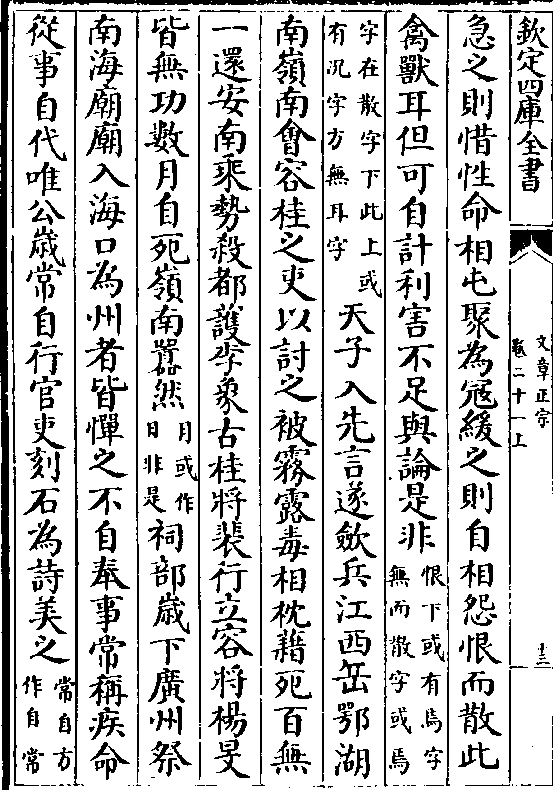 欽定四庫全書
文章正宗
卷二十一上
十三
急之則惜性命相屯聚為冦緩之則自相怨恨而散此
禽獸耳但可自計利害不足與論是非恨下或有焉字無而散字或焉
字在散字下此上或有况字方無耳字天子入先言遂斂兵江西岳鄂湖
南嶺南會容桂之吏以討之被霧露毒相枕藉死百無
一還安南乘勢殺都護李象古桂將裴行立容將楊旻
皆無功數月自死嶺南囂然月或作日非是祠部歲下廣州祭
南海廟廟入海口為州者皆憚之不自奉事常稱疾命
從事自代唯公歲常自行官吏刻石為詩美之常自方作自常